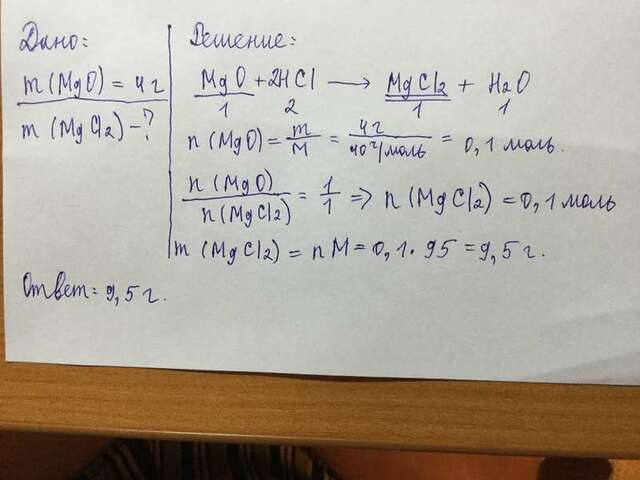 Дано:
m(MgO) = 4 г
m(MgCl2) - ?
Решение:
MgO + 2HCl → MgCl2 + H2O
1 2 1 1
n(MgO) = m/M = 4 г/40 г/моль = 0,1 моль.
n(MgO)/n(MgCl2) = 1/1 => n(MgCl2) = 0,1 моль
m(MgCl2) = nM = 0,1 · 95 = 9,5 г.
Ответ: 9,5 г.